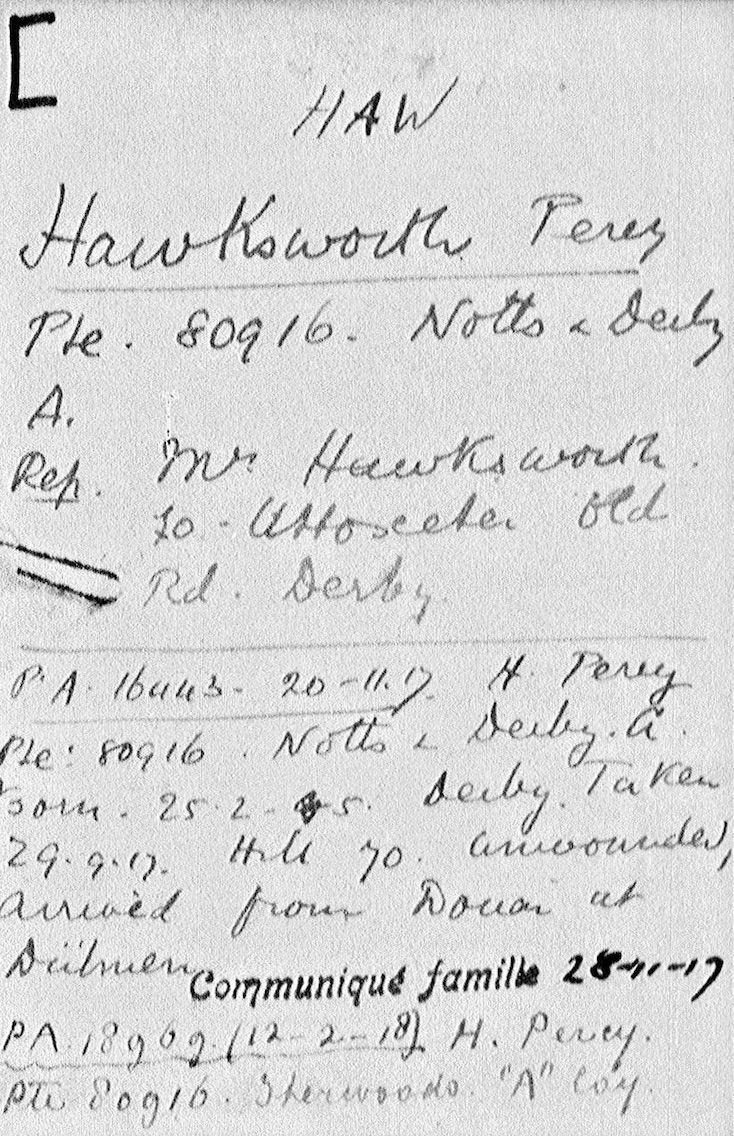 HAW
Hawksworth Percy
Pte. 80916. Notts & Derby
A.
Rep. Mrs Hawksworth.
70 - Uttoxeter Old
Rd. Derby.
P.A. 16443 - 20-11.17 H. Percy
Pte: 80916. Notts & Derby. A.
Born. 25.2. 5. Derby. Taken
29.9.17. Hill 70. unwounded,
arrived from Douai at
Dülmen
Communiqué famille 28-11-17
PA. 18969. (12-2-18) H. Percy.
Pte 80916. Sherwoods. "A" Coy.